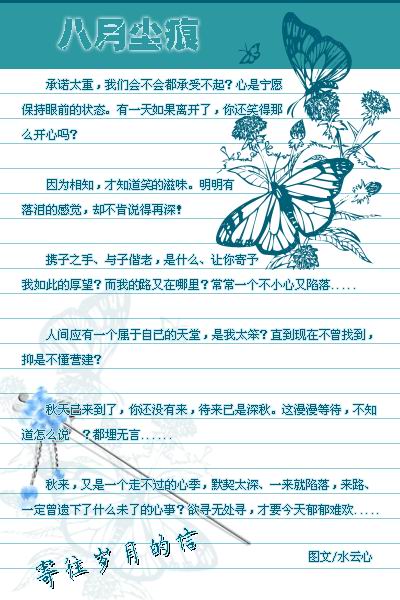 八月尘痕
承诺太重，我们会不会都承受不起？心是宁愿
保持眼前的状态。有一天如果离开了，你还笑得那
么开心吗？
因为相知，才知道笑的滋味。明明有
落泪的感觉，却不肯说得再深！
携子之手、与子偕老，是什么、让你寄予
我如此的厚望？而我的路又在哪里？常常一个不小心又陷落.....
人间应有一个属于自己的天堂，是我太笨？直到现在不曾找到，
抑是不懂营建？
秋天已来到了，你还没有来，待来已是深秋。这漫漫等待，不知
道怎么说　？都埋无言......
秋来，又是一个走不过的心季，默契太深、一来就陷落，来路、
一定曾遗下了什么未了的心事？欲寻无处寻，才要今天郁郁难欢.....
寄往岁月的信
图文/水云心